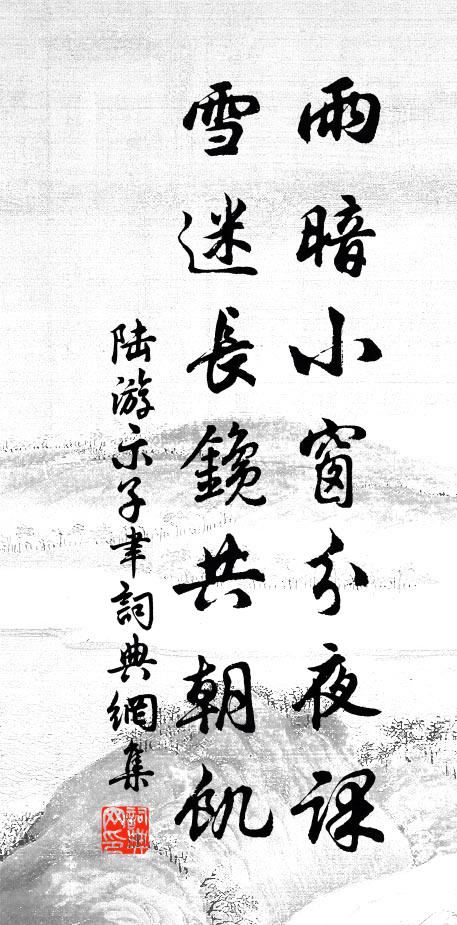 雨暗小窗分夜課
雪迷長鑱共朝飢
陸游示子聿詞典網集